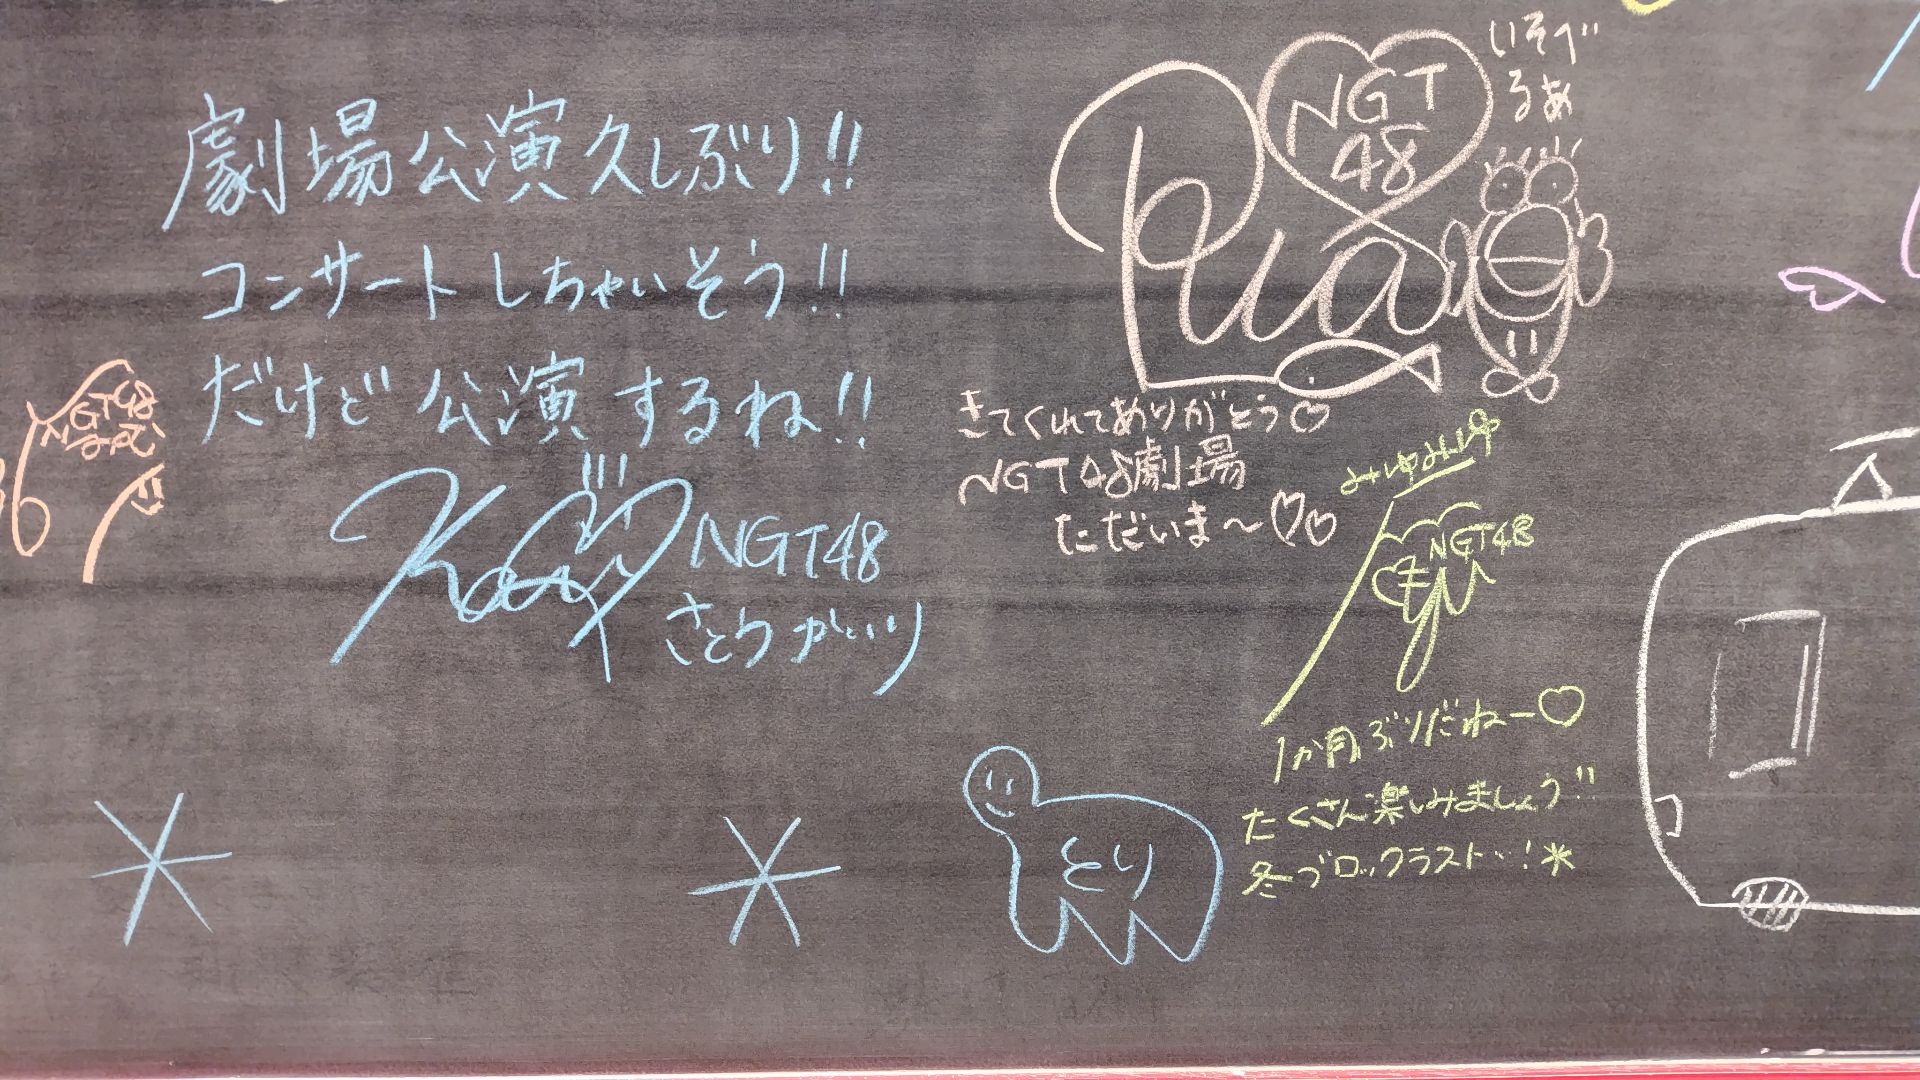 劇場公演久しぶり!!
コンサートしちゃいそう!!
だけど公演するね!!
NGT48
さとうかいり
NGT48
いそべ
るあ
NGT
48
Rua
きてくれてありがとう♡
NGT48劇場
ただいま〜♡♡
みゆみゆ
NGT48
1か月ぶりだねー♡
たくさん楽しみましょう!!
冬ブロックラスト…!*
とり